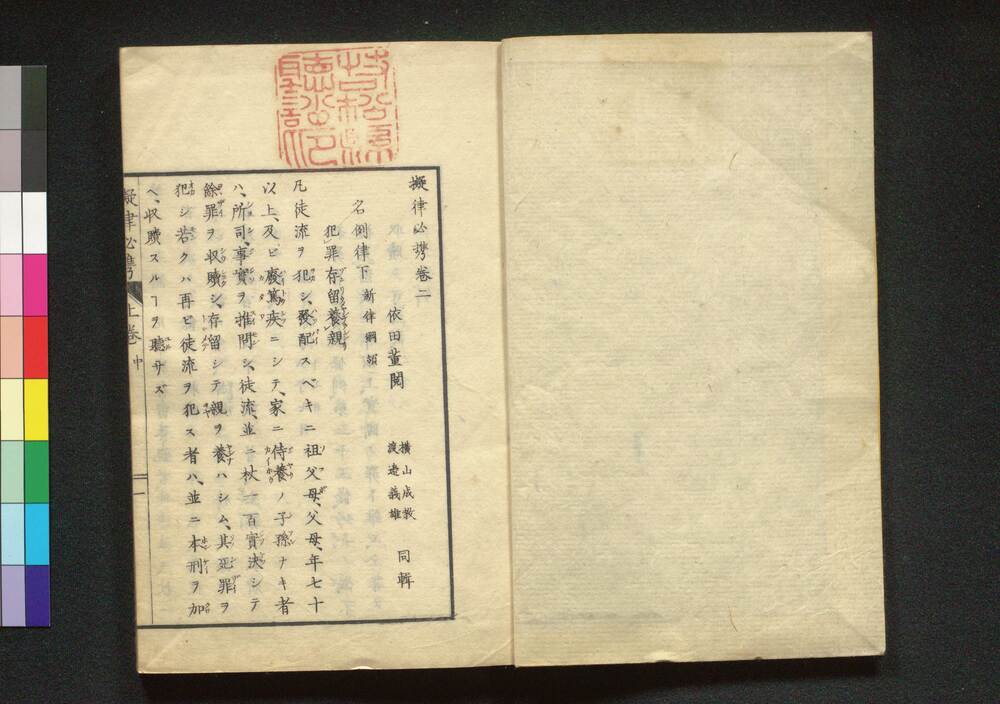 擬律必携卷二
依田薫閲
横山成教
渡邉義雄
同輯
名例律下 新律綱領
犯罪存留養親
凡徒流ヲ犯シ、發配スベキニ祖父母、父母、年七十
以上、及ビ癈篤疾ニシテ、家ニ侍養ノ子孫ナキ者
ハ、所司、事實ヲ推問シ、徒流、並ニ杖一百實決シテ
餘罪ヲ収贖シ、存留シテ親ヲ養ハシム、其死罪ヲ
犯シ若クハ再ビ徒流ヲ犯ス者ハ、並ニ本刑ヲ加
ヘ、収贖スルヿヲ聴サズ
擬律必携 上卷 中 一